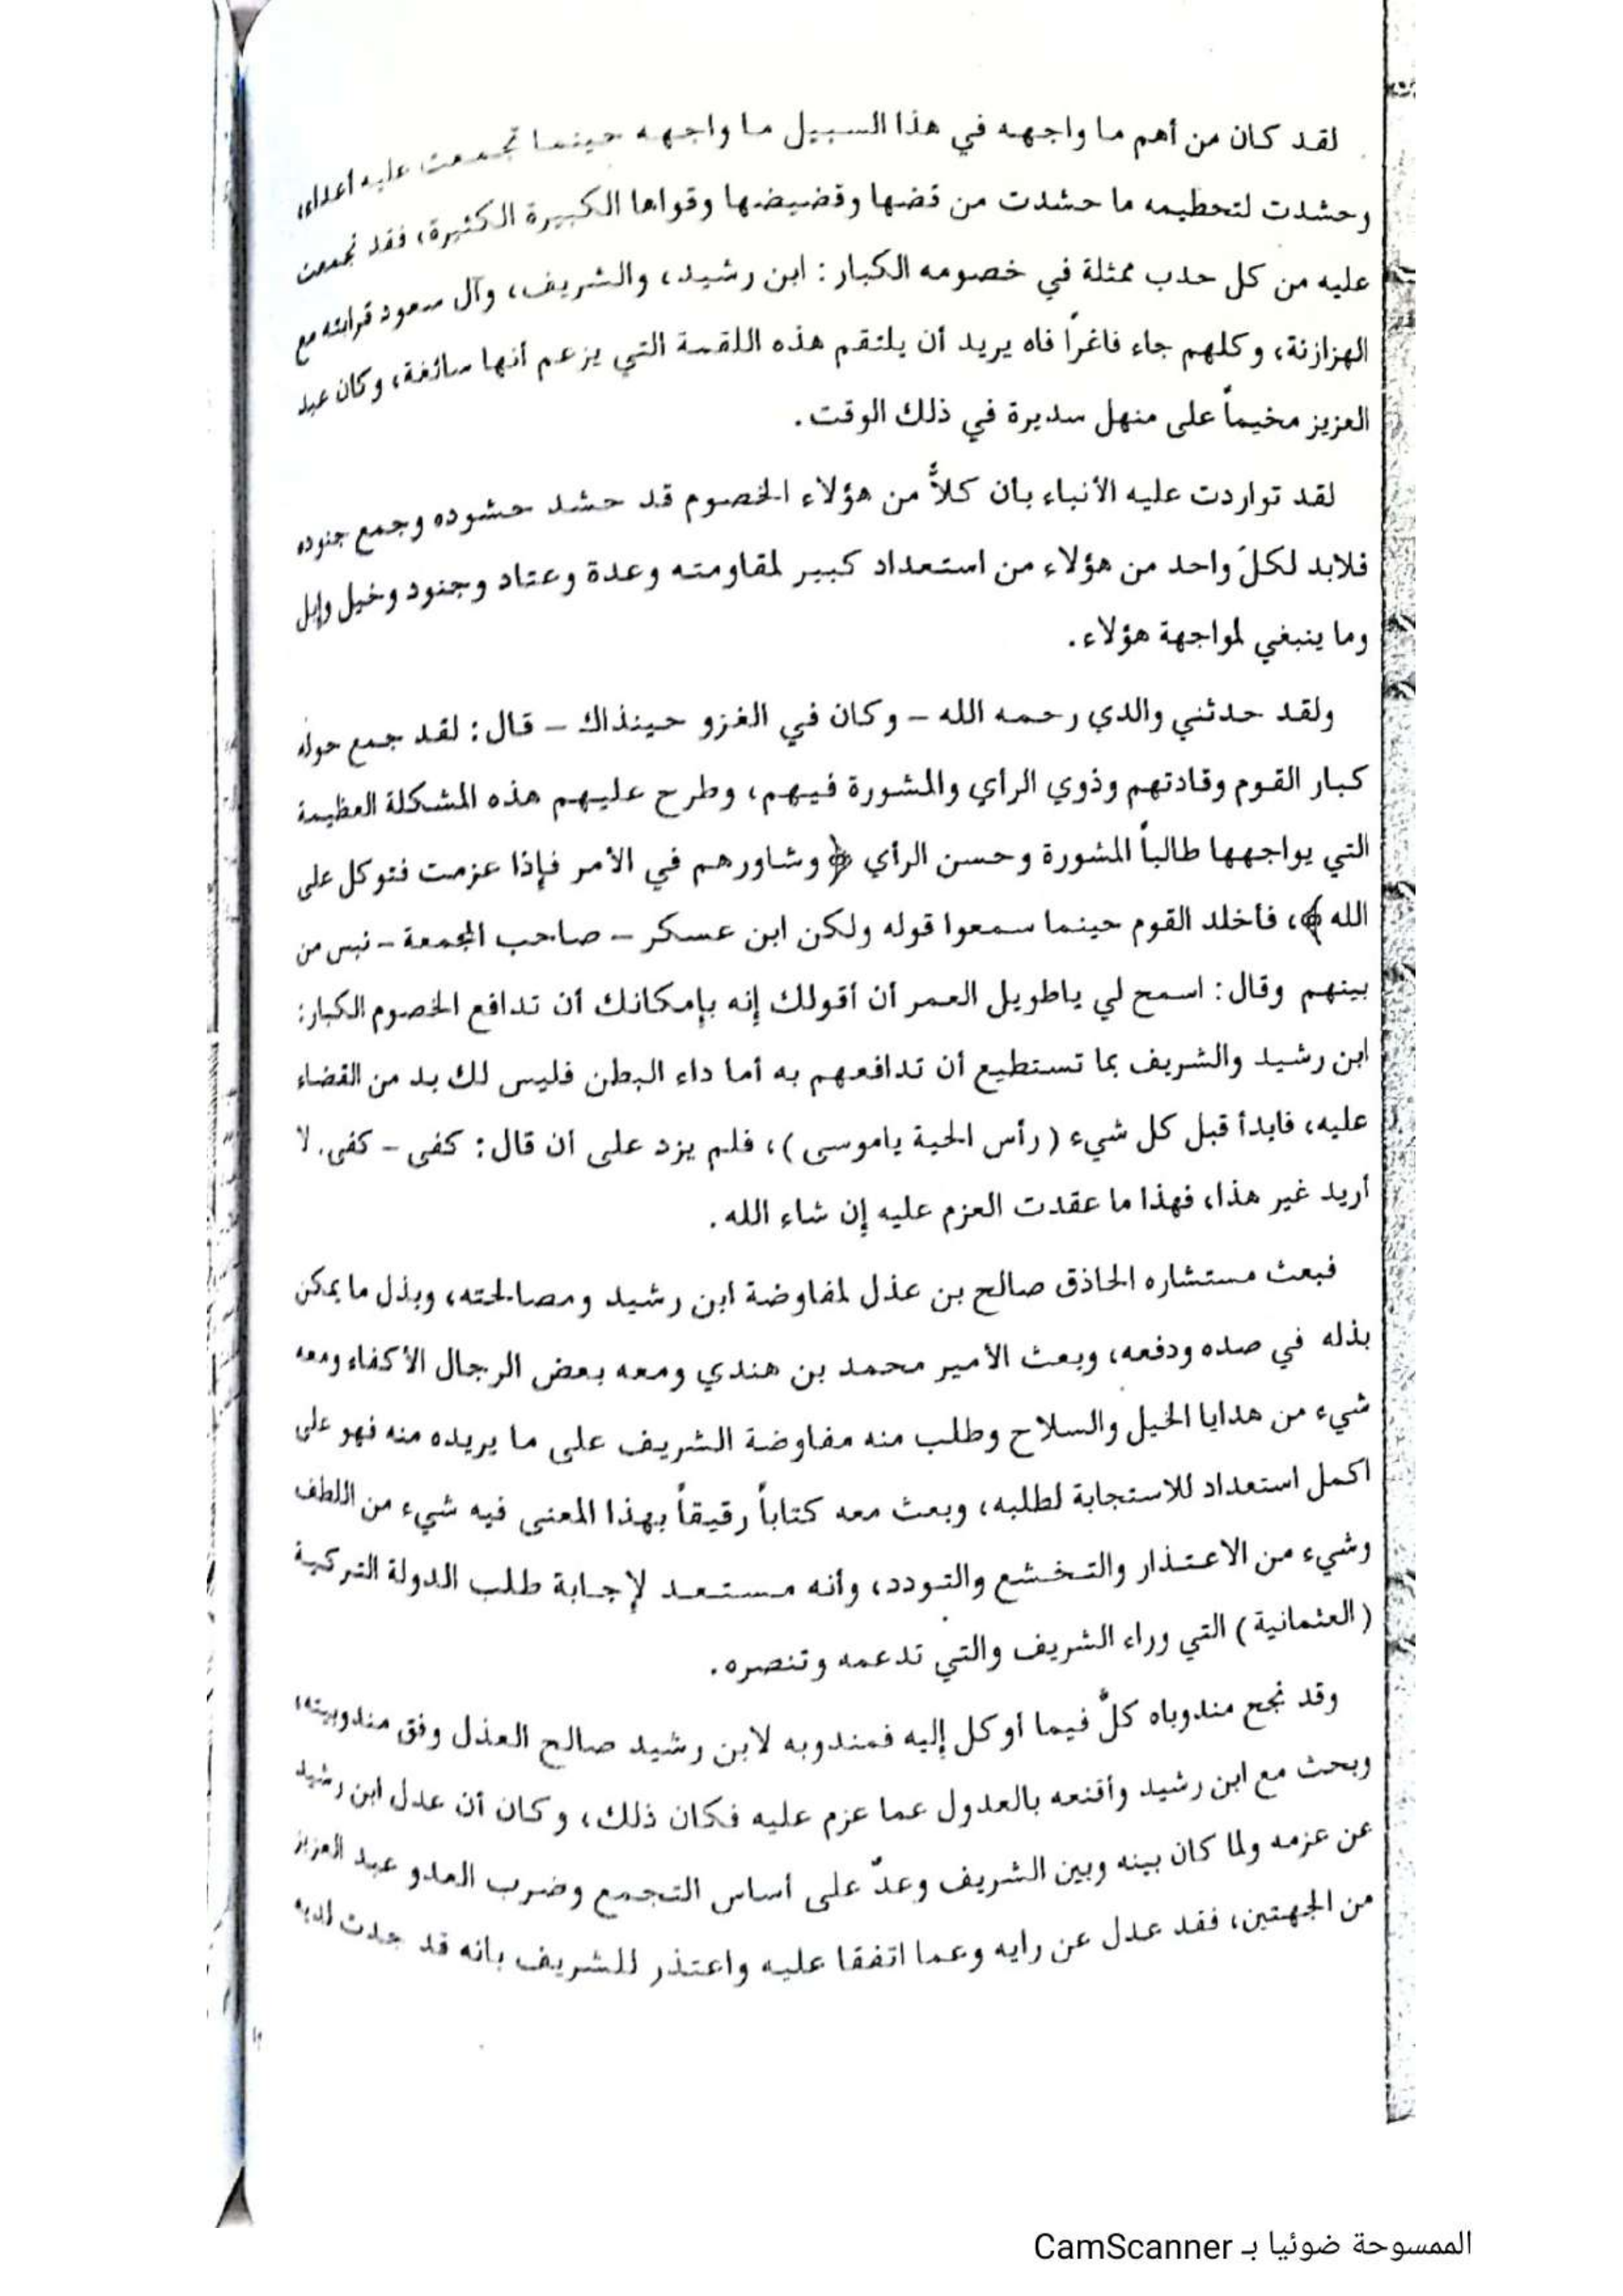 لقد كان من أهم ما واجهه في هذا السبيل ما واجهه حينما تجمعت عليه أعداءه،
وحشدت لتحطيمه ما حشدت من قضها وقضيضها وقواها الكبيرة الكثيرة، فقد تجمعت
عليه من كل حدب ممثلة في خصومه الكبار: ابن رشيد، والشريف، وآل سعود قرابته مع
الهزازنة، وكلهم جاء فاغراً فاه يريد أن يلتقم هذه اللقمة التي يزعم أنها سائغة، وكان عبد
العزيز مخيماً على منهل سديرة في ذلك الوقت.
لقد تواردت عليه الأنباء بأن كلاًّ من هؤلاء الخصوم قد حشد حشوده وجمع جنوده
فلابد لكلَ واحد من هؤلاء من استعداد كبير لمقاومته وعدة وعتاد وجنود وخيل وإبل
وما ينبغي لمواجهة هؤلاء.
ولقد حدثني والدي رحمه الله – وكان في الغزو حينذاك – قال: لقد جمع حوله
كبار القوم وقادتهم وذوي الرأي والمشورة فيهم، وطرح عليهم هذه المشكلة العظيمة
التي يواجهها طالباً المشورة وحسن الرأي ﴿وشاورهم في الأمر فإذا عزمت فتوكل على
الله﴾، فأخلد القوم حينما سمعوا قوله ولكن ابن عسكر – صاحب المجمعة – نبس من
بينهم وقال: اسمح لي ياطويل العمر أن أقولك إنه بإمكانك أن تدافع الخصوم الكبار:
ابن رشيد والشريف بما تستطيع أن تدافعهم به أما داء البطن فليس لك بد من القضاء
عليه، فابدأ قبل كل شيء (رأس الحية ياموسى)، فلم يزد على أن قال: كفى – كفى. لا
أريد غير هذا، فهذا ما عقدت العزم عليه إن شاء الله.
فبعث مستشاره الحاذق صالح بن عذل لمفاوضة ابن رشيد ومصالحته، وبذل ما يمكن
بذله في صده ودفعه، وبعث الأمير محمد بن هندي ومعه بعض الرجال الأكفاء ومعه
شيء من هدايا الخيل والسلاح وطلب منه مفاوضة الشريف على ما يريده منه فهو على
اكمل استعداد للاستجابة لطلبه، وبعث معه كتاباً رقيقاً بهذا المعنى فيه شيء من اللطف
وشيء من الاعتذار والتخشع والتودد، وأنه مستعد لإجابة طلب الدولة التركية
(العثمانية) التي وراء الشريف والتي تدعمه وتنصره.
وقد نجح مندوباه كلٌّ فيما أوكل إليه فمندوبه لابن رشيد صالح العذل وفق مندوبيته،
وبحث مع ابن رشيد وأقنعه بالعدول عما عزم عليه فكان ذلك، وكان أن عدل ابن رشيد
عن عزمه ولما كان بينه وبين الشريف وعدٌ على أساس التجمع وضرب العدو عبد العزيز
من الجهتين، فقد عدل عن رايه وعما اتفقا عليه واعتذر للشريف بانه قد جدت لديه
الممسوحة ضوئيا بـ CamScanner